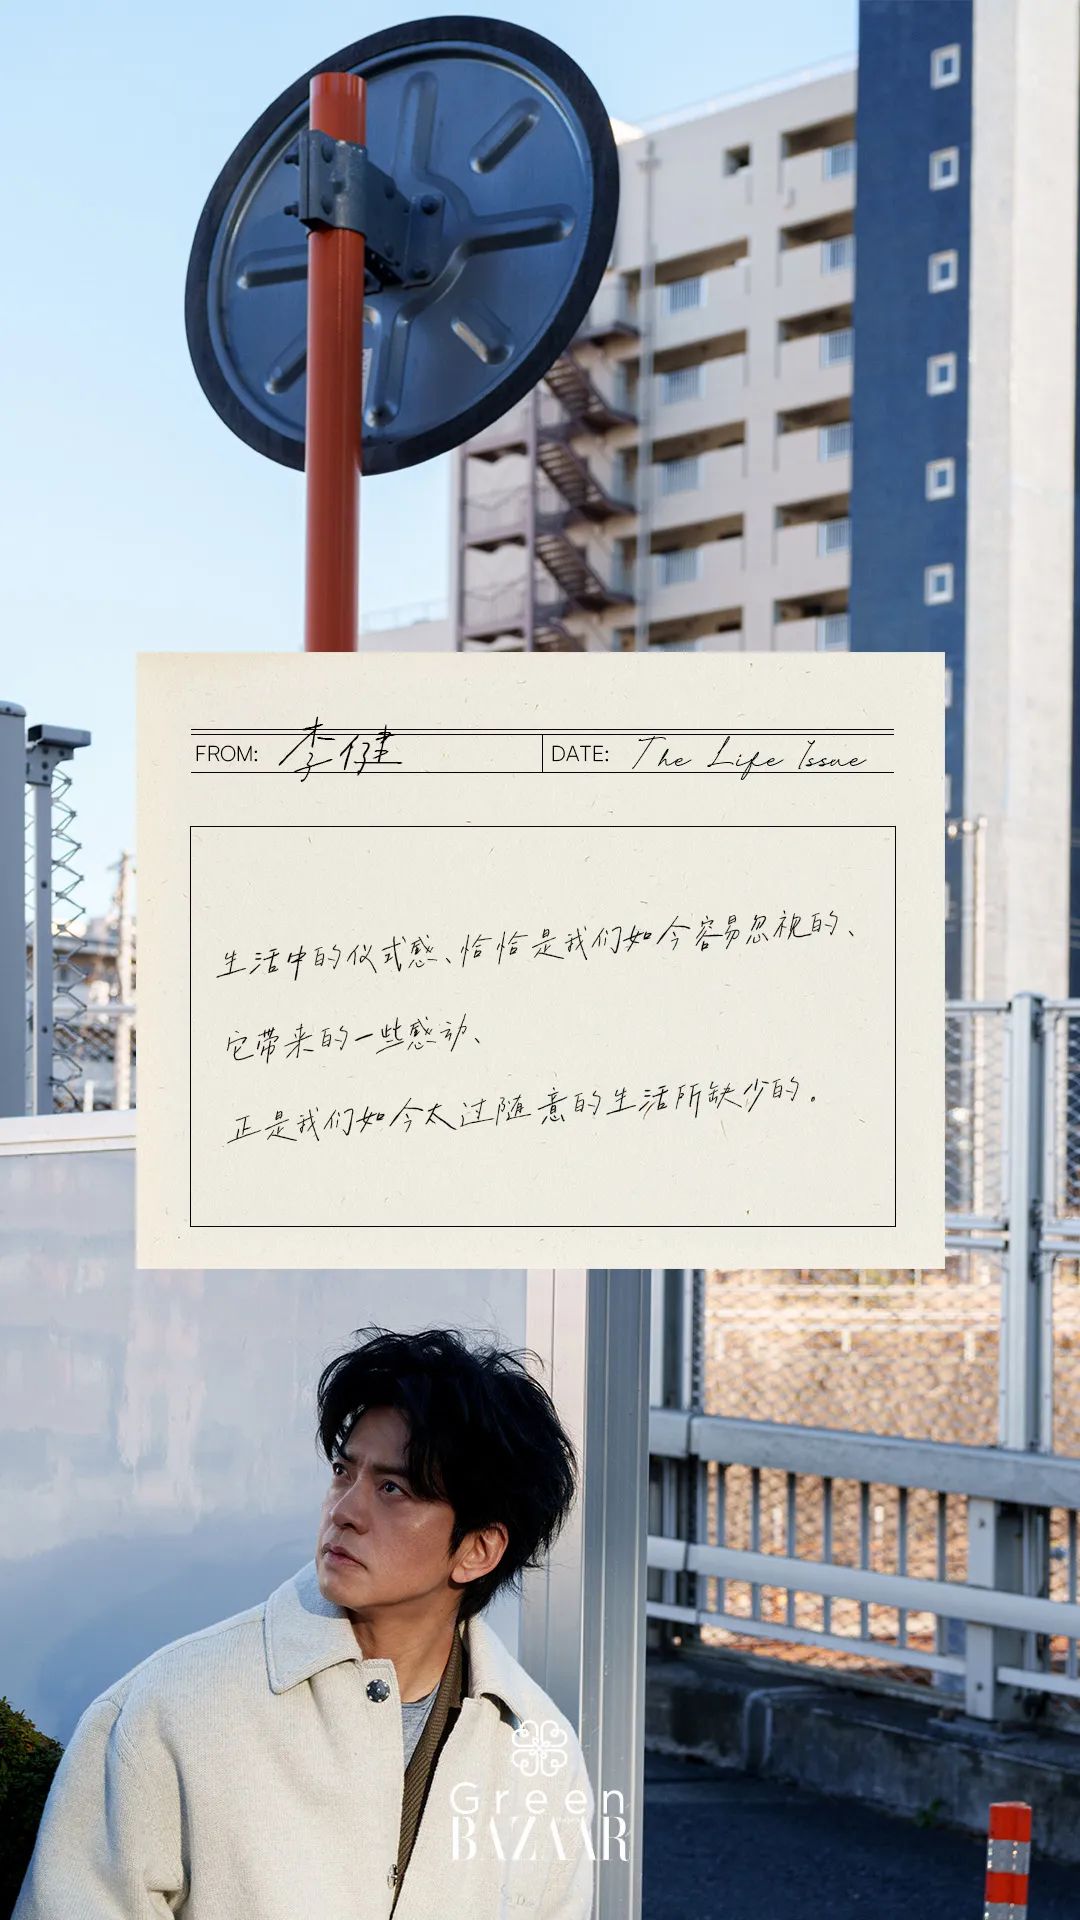 FROM: 李健
DATE: The Life Issue
生活中的仪式感、恰恰是我们如今容易忽视的、
它带来的一些感动、
正是我们如今太过随意的生活所缺少的。
Green
BAZAAR